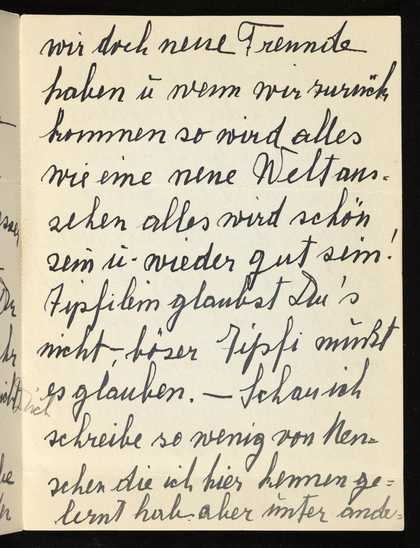 wir doch neue Freunde
haben u wenn wir zurück
kommen so wird alles
wie eine neue Welt aus-
sehen alles wird schön
sein u. wieder gut sein!
Zipfilein glaubst Du's
nicht, böser Zipfi müßt
es glauben. – Schau ich
Dich
schreibe so wenig von Men=
schen die ich hier kennen ge=
lernt hab. aber unter ande=